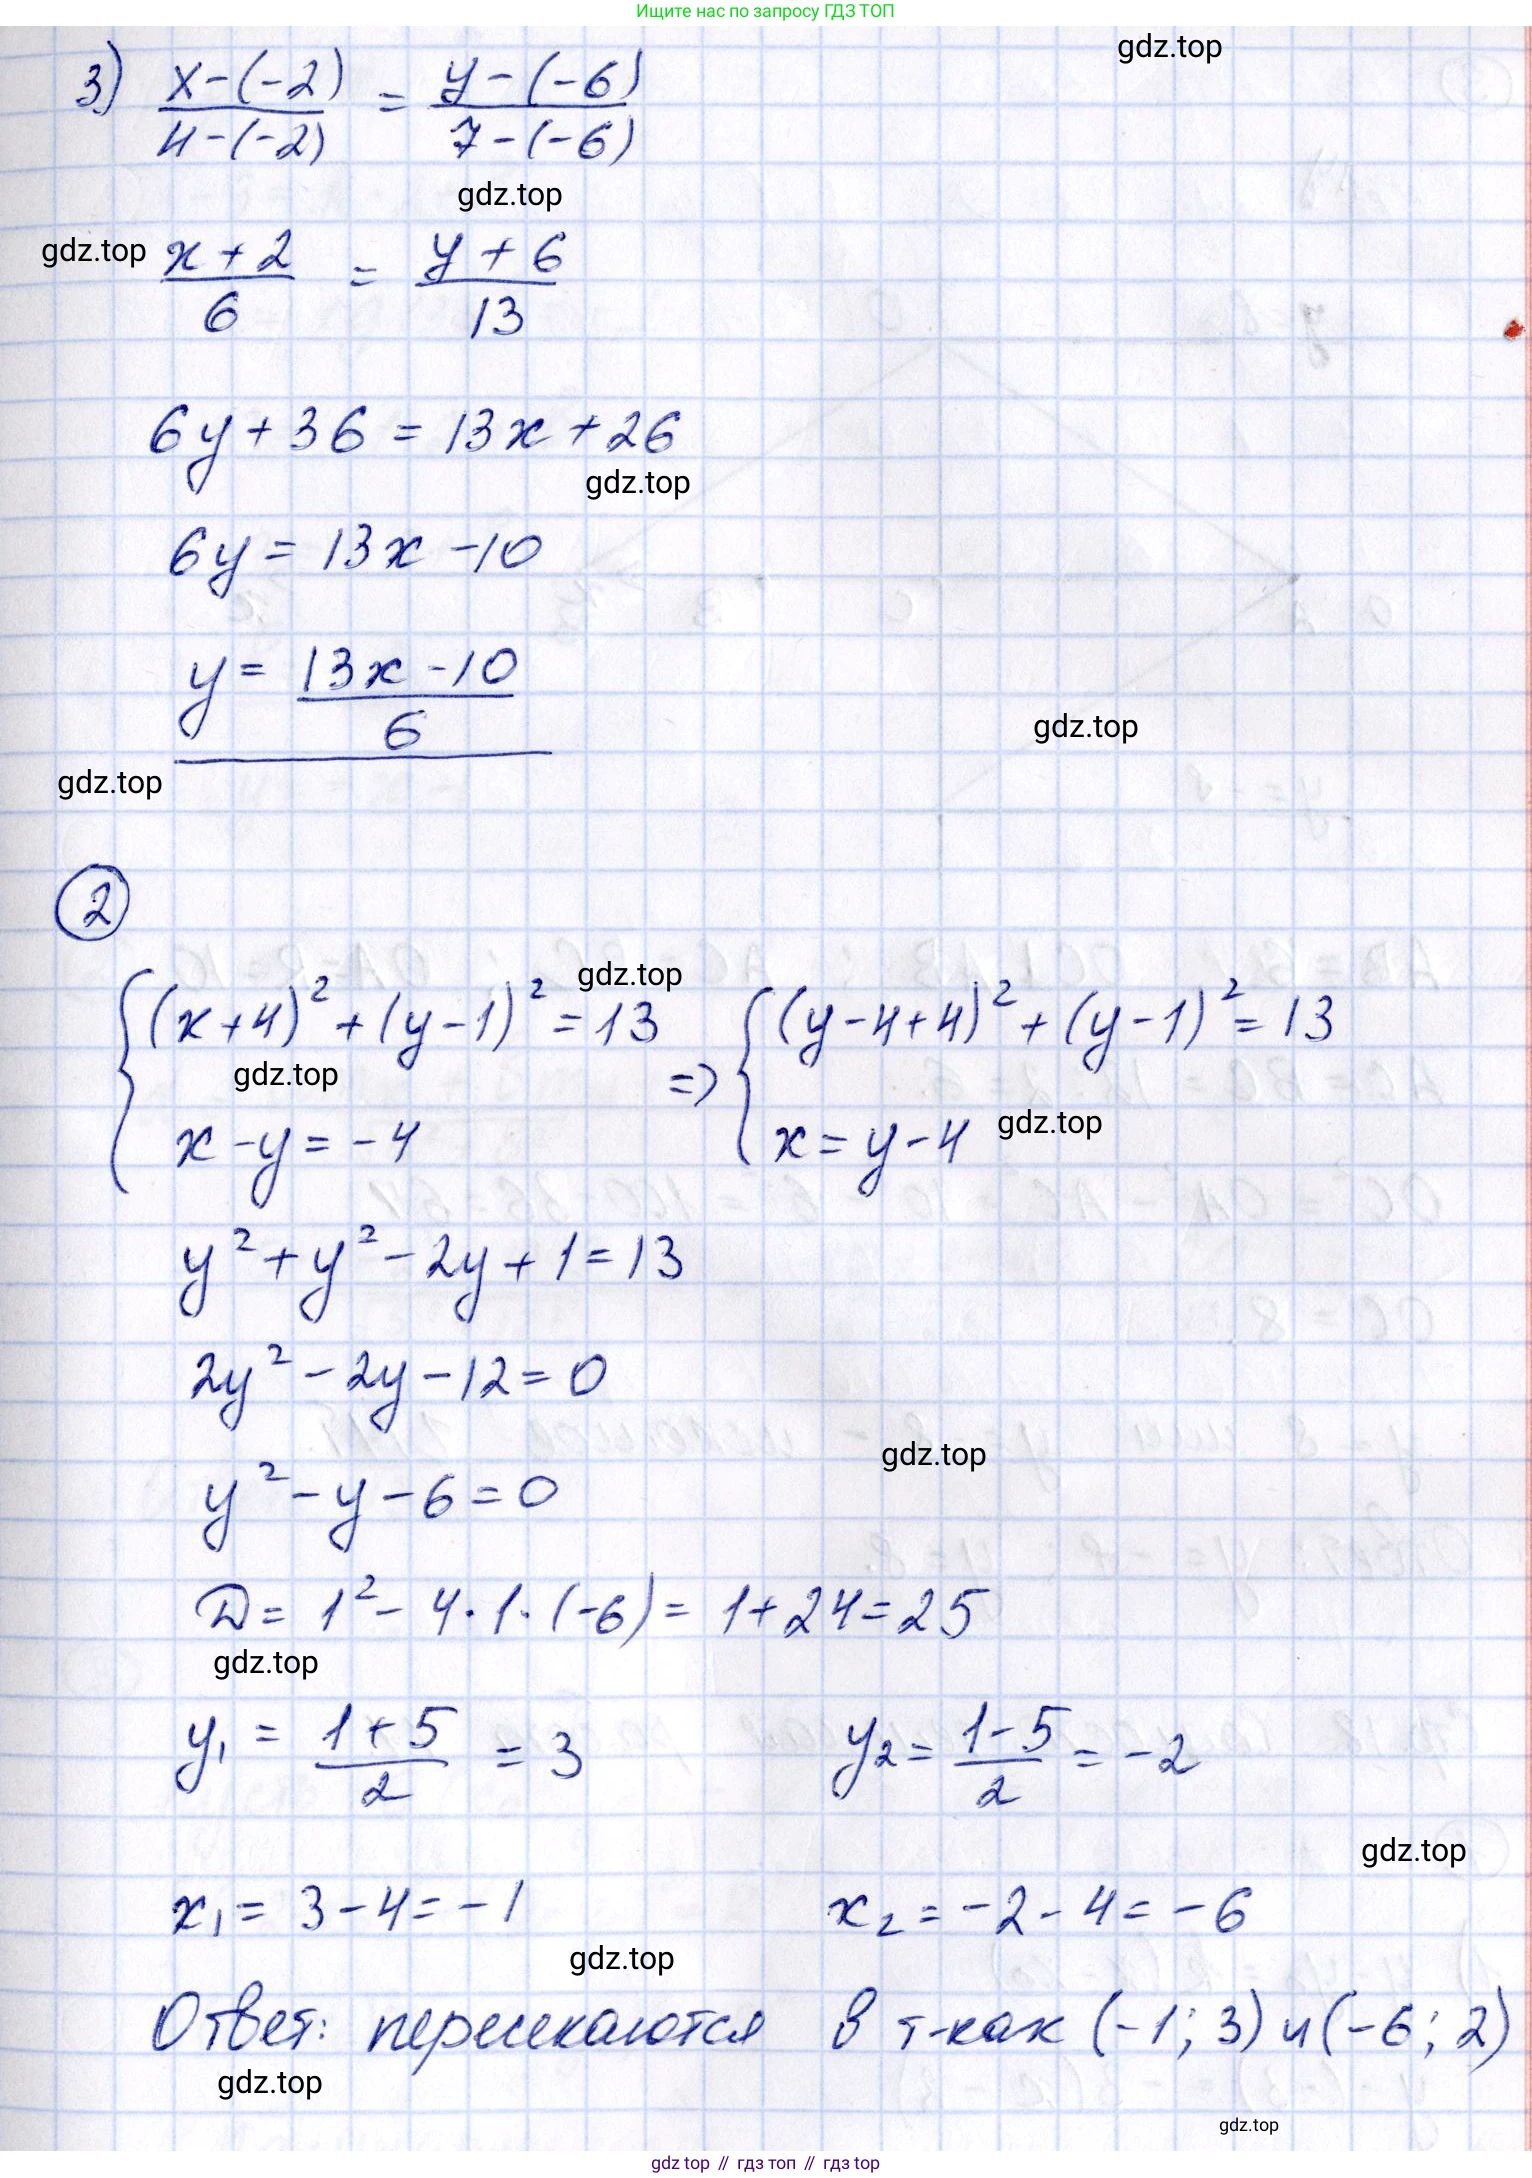 Ищите нас по запросу ГДЗ ТОП
gdz.top
3) (x-(-2))/(4-(-2)) = (y-(-6))/(7-(-6))
gdz.top
gdz.top
(x+2)/6 = (y+6)/13
6y+36 = 13x+26
gdz.top
6y = 13x-10
y = (13x-10)/6
gdz.top
gdz.top
2
gdz.top
{(x+4)²+(y-1)²=13 => {(y-4+4)²+(y-1)²=13
gdz.top
x-y=-4 x=y-4
gdz.top
y²+y²-2y+1=13
2y²-2y-12=0
gdz.top
y²-y-6=0
D=1²-4·1·(-6)=1+24=25
gdz.top
y₁ = (1+5)/2 = 3 y₂ = (1-5)/2 = -2
gdz.top
x₁ = 3-4=-1 x₂ = -2-4=-6
gdz.top
Ответ: пересекаются в т-ках (-1; 3) и (-6; 2)
gdz.top
gdz.top
gdz top // гдз топ // гдз top